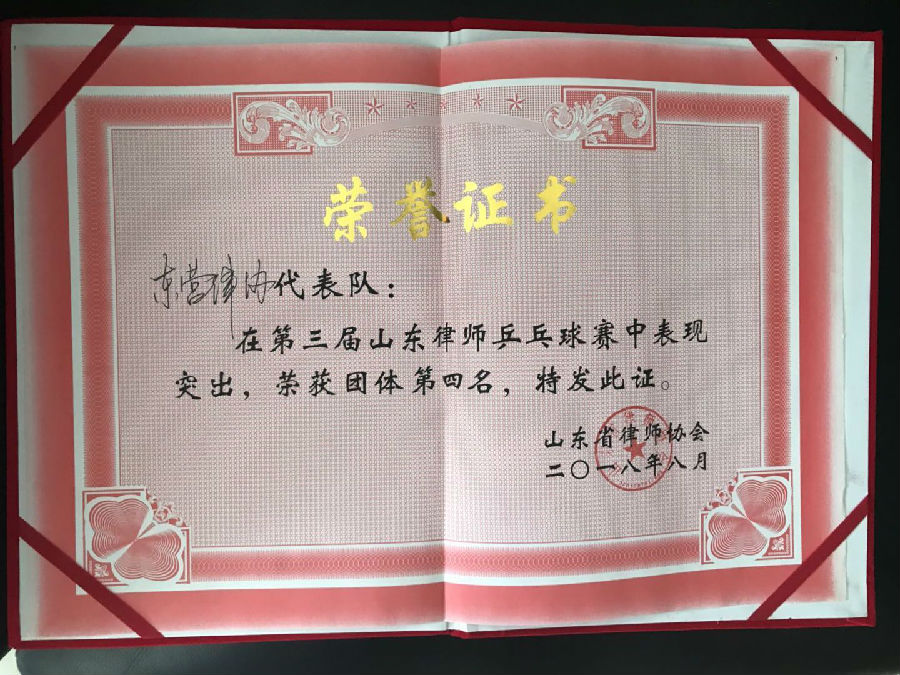 荣誉证书
东营律协代表队：
在第三届山东律师乒乓球赛中表现
突出，荣获团体第四名，特发此证。
山东省律师协会
二〇一八年八月